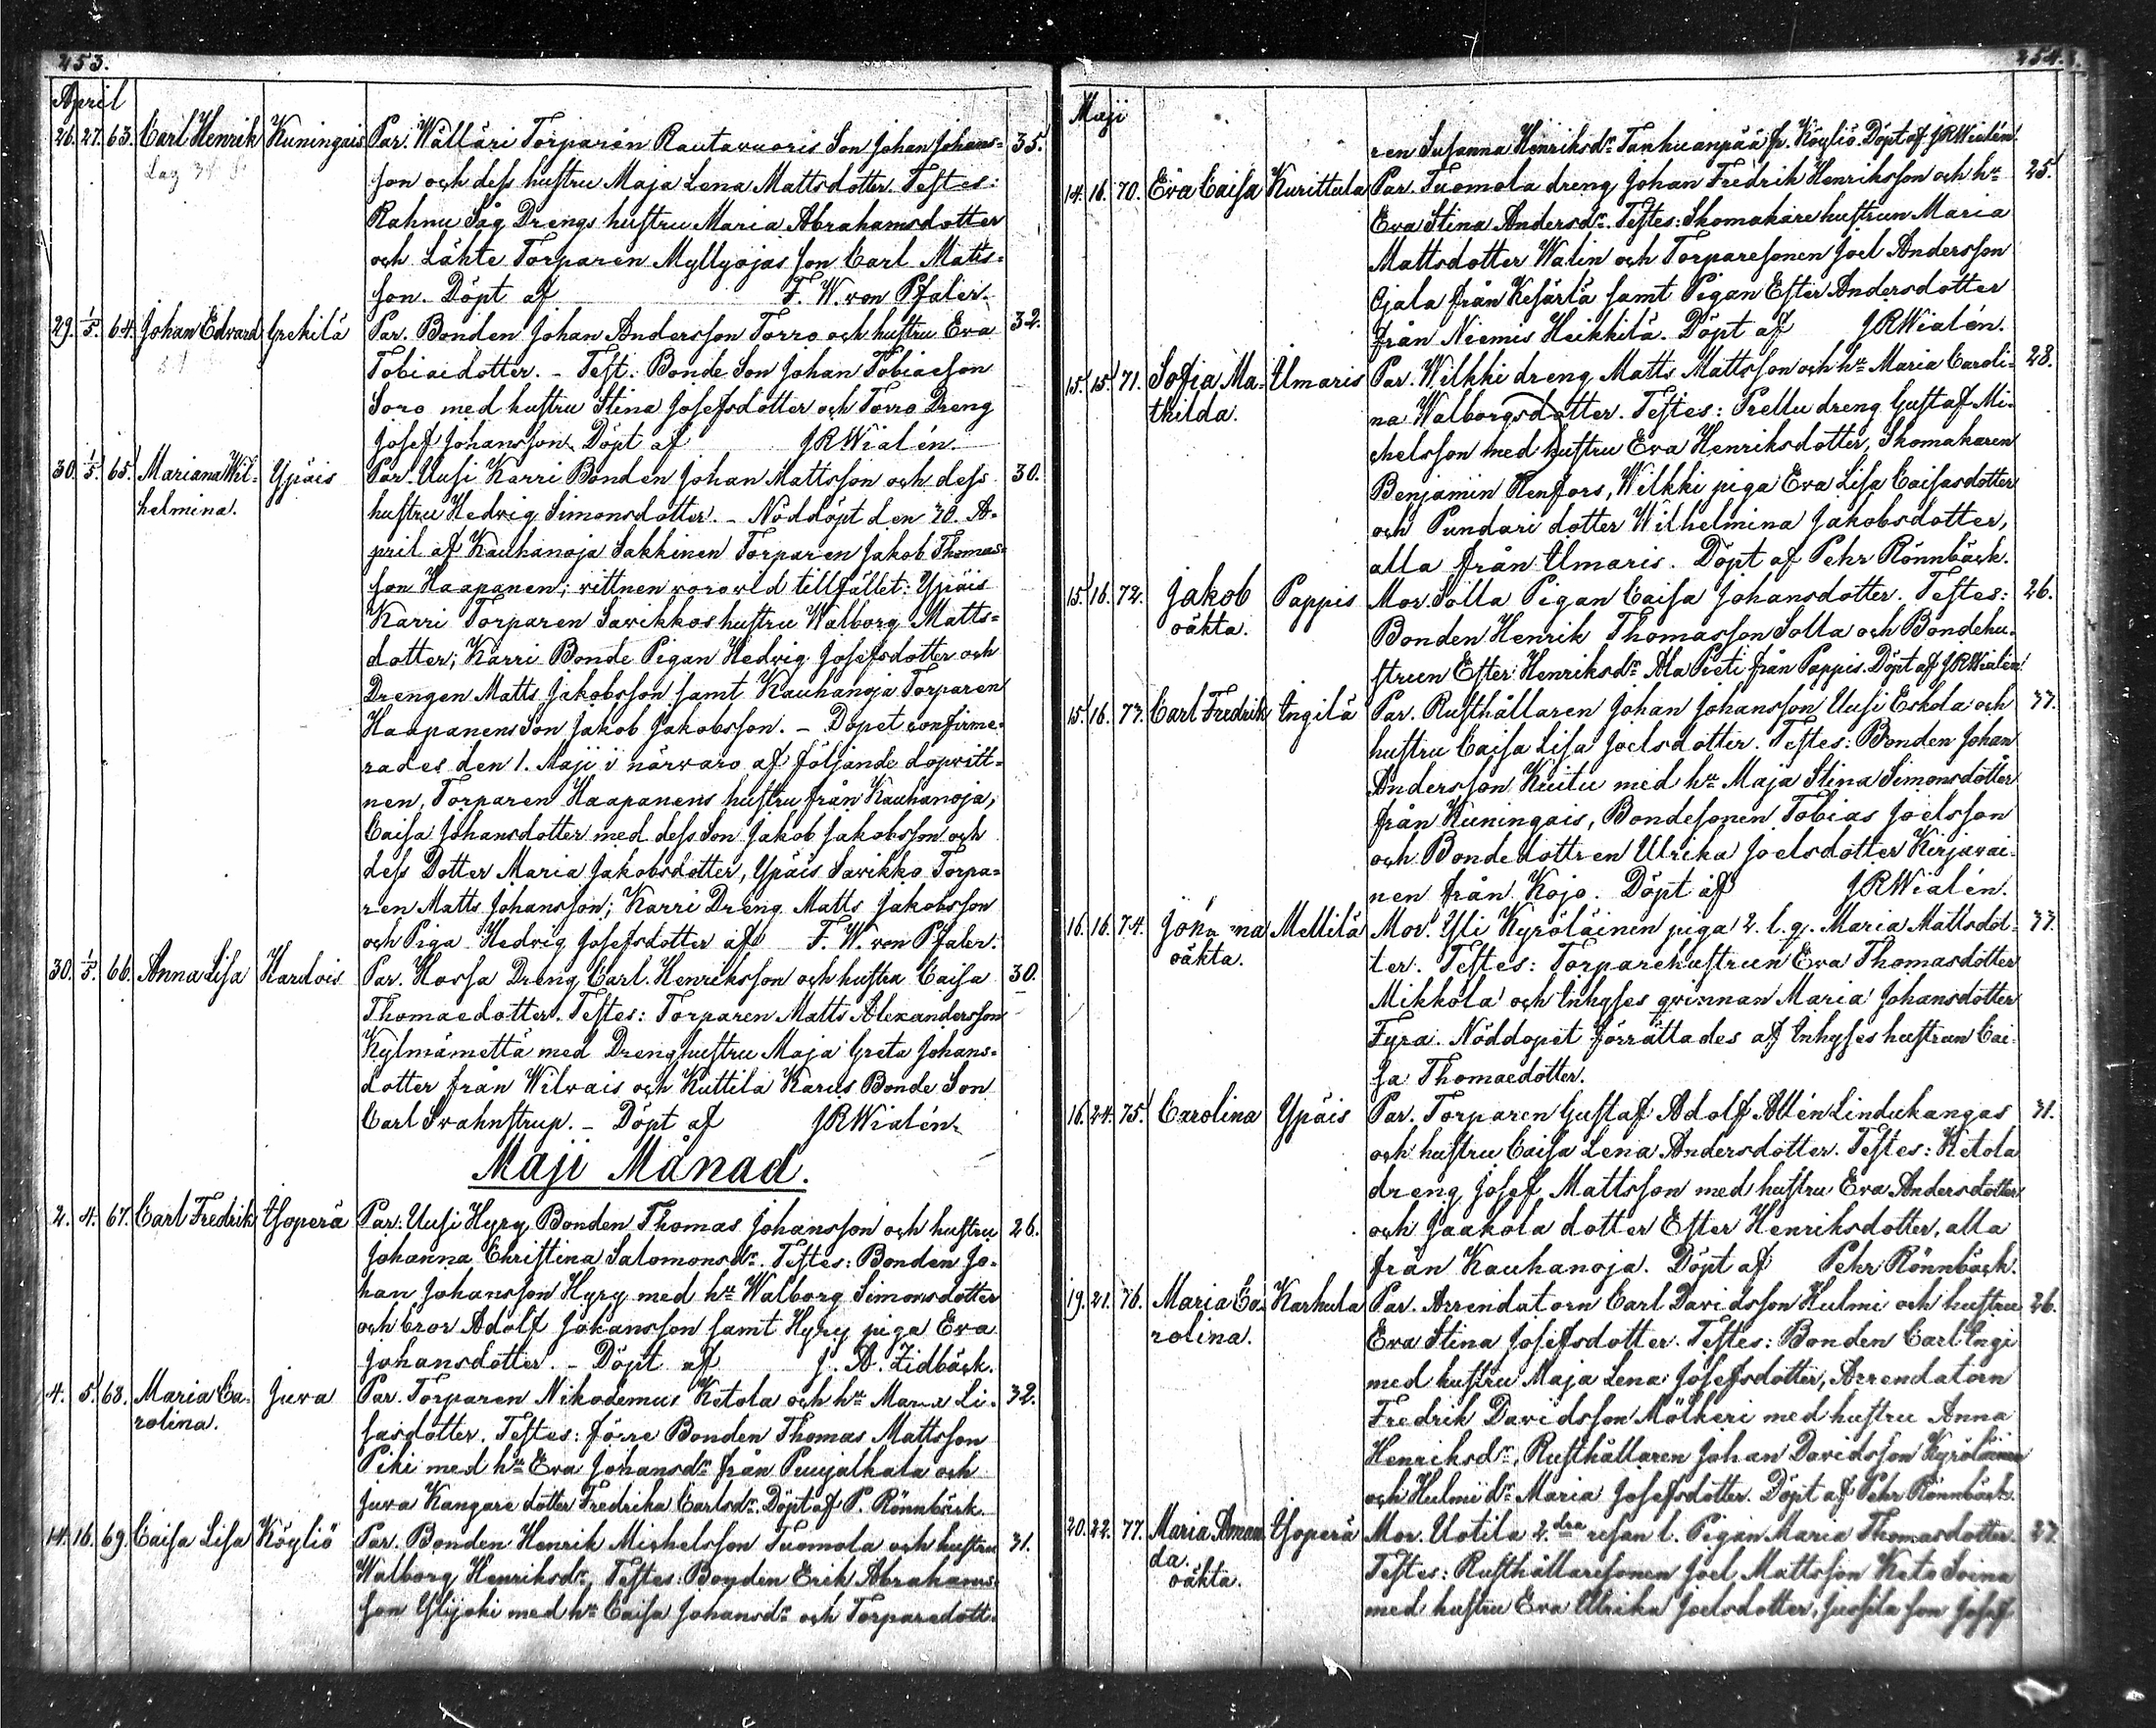 253.
April
26. 27. 63. Carl Henrik Kuningais Par. Wälläri Torparen Rautavuoris Son Johan Johans= 35.
son och dess hustru Maja Lena Mattsdotter. Testes:
Rahnu Såg Drengs hustru Maria Abrahamsdotter
och Lähte Torparen Myllyojas Son Carl Matts=
son. Döpt af F. W. von Pfaler.
29. 1/5 64. Johan Edvard Grekilä Par. Bonden Johan Andersson Torro och hustru Eva 32.
Tobiaidotter. - Test. Bonde Son Johan Tobiaeson
Soro med hustru Stina Josefsdotter och Torro Dreng
Josef Johansson. Döpt af JRWialén.
30. 1/5 65. Mariana Wil= Ypäis Par. Uusi Karri Bonden Johan Mattsson och dess 30.
helmina. hustru Hedvig Simonsdotter. - Nöddöpt den 30. A=
pril af Kauhanoja Sakkinen Torparen Jakob Thomas=
son Haapanen; vittnen voro vid tillfället: Ypäis
Karri Torparen Savikkos hustru Walborg Matts=
dotter; Karri Bonde Pigan Hedvig Josefsdotter och
Drengen Matts Jakobsson samt Kauhanoja Torparen
Haapanens Son Jakob Jakobsson. - Dopet confirme=
rades den 1. Maji i närvaro af följande dopvitt=
nen, Torparen Haapanens hustru från Kauhanoja,
Caisa Johansdotter med dess Son Jakob Jakobsson och
dess Dotter Maria Jakobsdotter, Ypäis Savikko Torpa=
ren Matts Johansson; Karri Dreng Matts Jakobsson
och Piga Hedvig Josefsdotter af F. W. von Pfaler.
30. 1/5 66. Anna Lisa Kardois Par. Hossa Dreng Carl Henriksson och hustru Caisa 30.
Thomaedotter. Testes: Torparen Matts Alexandersson
Kylmämettä med Drenghustru Maja Greta Johans=
dotter från Wilvais och Kuttila Karus Bonde Son
Carl Svahnstrup. - Döpt af JRWialén.
Maji Månad.
2. 4. 67. Carl Fredrik Ysoperä Par. Uusi Hyry Bonden Thomas Johansson och hustru 26.
Johanna Christina Salomonsdr. Testes: Bonden Jo=
han Johansson Hyry med hu Walborg Simonsdotter
och bror Adolf Johansson samt Hyry piga Eva
Johansdotter. - Döpt af J. A. Lidbäck.
4. 5. 68. Maria Ca= Juva Par. Torparen Nikodemus Ketola och hu Maria Li= 32.
rolina. sasdotter. Testes: förre Bonden Thomas Mattsson
Piki med hu Eva Johansdr från Puujalkala och
Juva Kangare dotter Fredrika Carlsdr. Döpt af P. Rönnbäck.
14. 16. 69. Caisa Lisa Köyliö Par. Bonden Henrik Michelsson Tuomola och hustru 31.
Walborg Henriksdr. Testes: Bonden Erik Abrahams=
son Ylijoki med hu Caisa Johansdr och Torparedott=
254.
Maji
ren Susanna Henriksdr Tanhuanpää fr. Köyliö. Döpt af JRWialén.
14. 16. 70. Eva Caisa Kurittula Par. Tuomola dreng Johan Fredrik Henriksson och hu 25.
Eva Stina Andersdr. Testes: Skomakare hustrun Maria
Mattsdotter Walin och Torparesonen Joel Andersson
Ojala från Kesärlä samt Pigan Ester Andersdotter
från Niemis Heikkilä. Döpt af JRWialén.
15. 15. 71. Sofia Ma= Ilmaris Par. Wilkki dreng Matts Mattsson och hu Maria Caroli= 28.
thilda. na Walborgsdotter. Testes: Prellu dreng Gustaf Mi=
chelsson med hustru Eva Henriksdotter, Skomakaren
Benjamin Renfors, Wilkki piga Eva Lisa Caisasdotter
och Pundari dotter Wilhelmina Jakobsdotter,
alla från Ilmaris. Döpt af Pehr Rönnbäck.
15. 16. 72. Jakob Pappis Mor. Solla Pigan Caisa Johansdotter. Testes: 26.
oäkta. Bonden Henrik Thomasson Solla och Bondehu=
strun Ester Henriksdr Ala Pieti från Pappis. Döpt af JRWialén.
15. 16. 73. Carl Fredrik Yngilä Par. Rusthållaren Johan Johansson Uusi Eskola och 37.
hustru Caisa Lisa Joelsdotter. Testes: Bonden Johan
Andersson Kuitu med hu Maja Stina Simonsdotter
från Kuningais, Bondesonen Tobias Joelsson
och Bondedottren Ulrika Joelsdotter Kirjavai=
nen från Kojo. Döpt af JRWialén.
16. 16. 74. Johanna Mellilä Mor. Yli Kyröläinen piga 2. l. g. Maria Mattsdot= 37.
oäkta. ter. Testes: Torparehustrun Eva Thomasdotter
Mikkola och Inhyses qvinnan Maria Johansdotter
Fyra. Nöddopet förrättades af Inhyses hustrun Cai=
sa Thomaedotter.
16. 24. 75. Carolina Ypäis Par. Torparen Gustaf Adolf Allén Lindukangas 31.
och hustru Caisa Lena Andersdotter. Testes: Ketola
dreng Josef Mattsson med hustru Eva Andersdotter
och Jaakola dotter Ester Henriksdotter, alla
från Kauhanoja. Döpt af Pehr Rönnbäck.
19. 21. 76. Maria Ca= Karhula Par. Arrendatorn Carl Davidsson Hulmi och hustru 26.
rolina. Eva Stina Josefsdotter. Testes: Bonden Carl Yngi
med hustru Maja Lena Josefsdotter, Arrendatorn
Fredrik Davidsson Mölkeri med hustru Anna
Henriksdr, Rusthållaren Johan Davidsson Kyröläinen
och Hulmi dr Maria Josefsdotter. Döpt af Pehr Rönnbäck.
20. 22. 77. Maria Aman Ysoperä Mor. Uotila 2.dra resan l. Pigan Maria Thomasdotter. 27.
da.
oäkta. Testes: Rusthållaresonen Joel Mattsson Keto Soina
med hustru Eva Ulrika Joelsdotter, Jussila son Josef